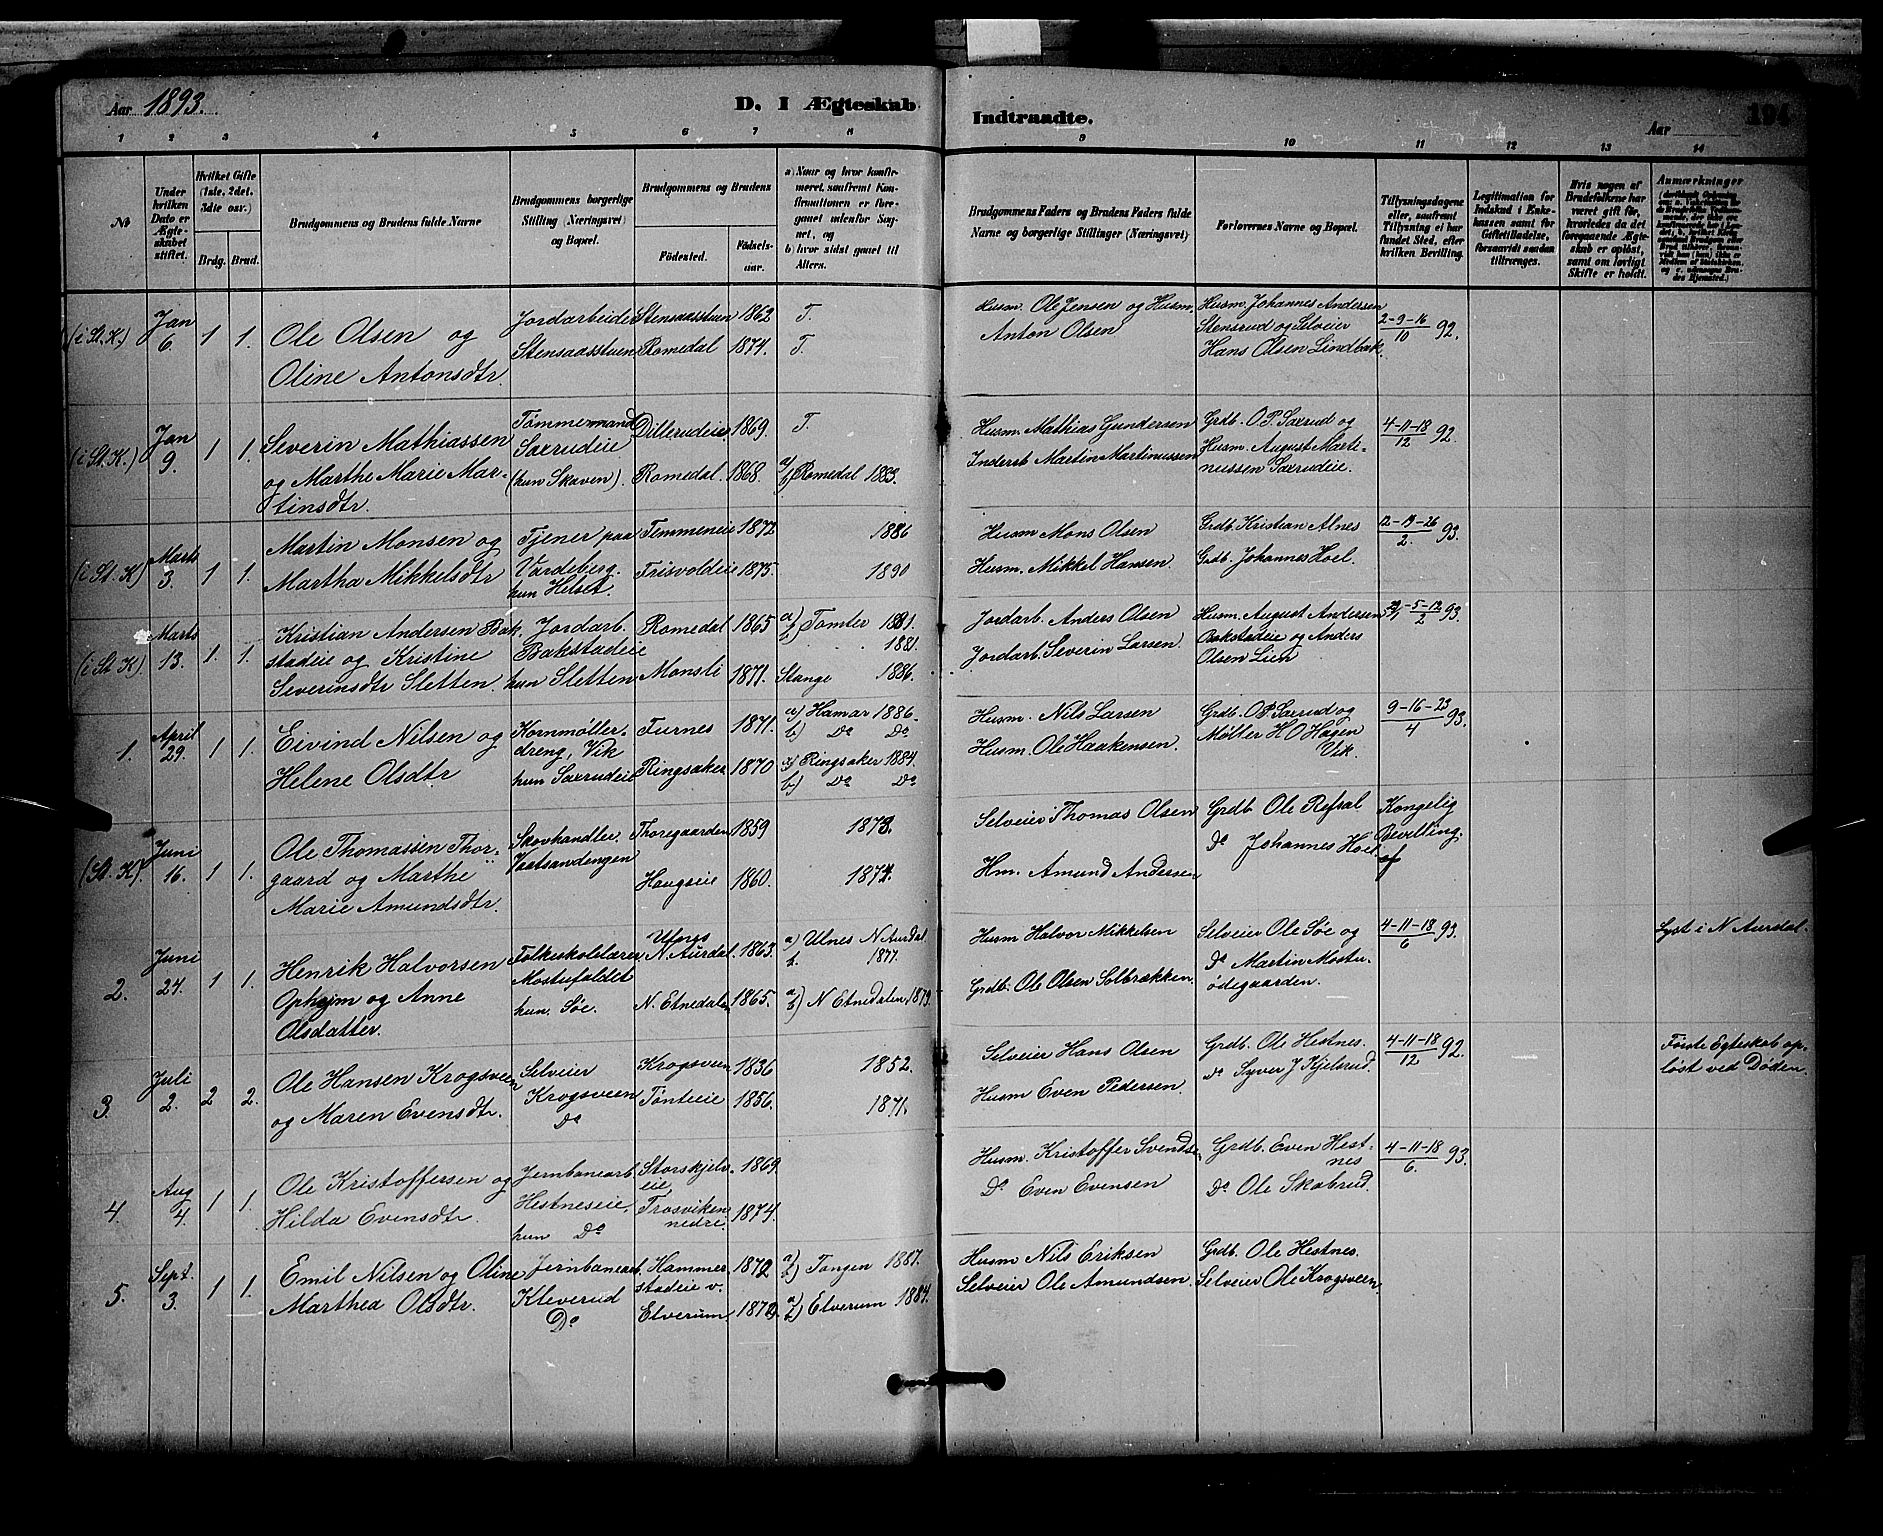 Aar 1893.
D. I Ægteskab
Indtraadte.
Aar
194
1 2 3 4 5 6 7 8 9 10 11 12 13 14
No
Under hvilken Dato er Ægteskabet stiftet.
Hvilket Gifte (1ste, 2det, 3die osv.)
Brdg. Brud.
Brudgommens og Brudens fulde Navne
Brudgommens borgerlige Stilling (Næringsvei) og Bopæl.
Brudgommens og Brudens
Fødested.
Fødselsaar.
a) Naar og hvor konfirmeret, saafremt Konfirmationen er foregaaet udenfor Sognet, og
b) hvor sidst gaaet til Alters.
Brudgommens Faders og Brudens Faders fulde Navne og borgerlige Stillinger (Næringsvei)
Forlovernes Navne og Bopæl.
Tillysningsdagene eller, saafremt Tillysning ei har fundet Sted, efter hvilken Bevilling.
Legitimation for Indskud i Enkekassen samt for Giftetilladelse, forsaavidt saadan tiltrænges.
Hvis nogen af Brudefolkene har været gift før, hvorledes da det foregaaende Ægteskab er opløst, samt om lovligt Skifte er holdt.
Anmærkninger
(i St. K.) Jan 6. 1 1. Ole Olsen og
Oline Antonsdtr.
Jordarbeider Stensaasstuen
Stensaasstuen 1862 T.
Romedal 1874. T.
Husm. Ole Jensen og Husm.
Anton Olsen
Husm. Johannes Andersen
Stensrud og Selveier
Hans Olsen Lindbak.
2-9-16/10 92.
(i St. K.) Jan 9. 1 1. Severin Mathiassen
og Marthe Marie Mar-
tinsdtr.
Tømmermand
Saxrudeie
(hun Skaven).
Dillerudeie 1869. T.
Romedal. 1868. a/b) Romedal 1883.
Husm. Mathias Gundersen
Inderst Martin Martinussen
Grdb. O.P. Saxrud og
Husm. August Marti-
nussen Saxrudeie.
4-11-18/12 92.
(i St. K) Marts 3. 1 1. Martin Monsen og
Martha Mikkelsdtr
Tjener paa
Vardeberg.
hun Helset.
Temmeneie 1872 1886
Frisvoldeie 1875. 1890
Husm Mons Olsen
Husm. Mikkel Hansen.
Grdb. Kristian Alnes
Grdb. Johannes Hoel.
12-19-26/2. 93.
(i St K). Marts 13. 1. 1. Kristian Andersen Bak-
stadeie og Kristine
Severinsdtr Sletten.
Jordarb.
Bakstadeie
hun Sletten
Romedal 1865 a/b) Tomter 1881.
1881.
Monsli 1871. Stange 1886.
Jordarb. Anders Olsen
Jordarb. Severin Larsen.
Husm. August Andersen
Bakstadeie og Anders
Olsen Lien
-5-12/2 93.
1. April 29. 1 1. Eivind Nilsen og
Helene Olsdtr
Kornmøller-
dreng, Vik
hun Saxrudeie
Furnes 1871. a) Hamar 1886.
b) Do Do
Ringsaker 1870 a) Ringsaker 1884.
b) Do Do
Husm. Nils Larsen
Husm. Ole Haakensen.
Grdb. O P Saxrud og
Møller H O Hagen
Vik.
9-16-23/4 93.
(St. K). Juni 16. 1 1. Ole Thomassen Thor-
gaard og Marthe
Marie Amundsdtr.
Skovhandler.
Vaatsandengen
Thoregaarden 1859 1873.
Haugseie 1860. 1874.
Selveier Thomas Olsen
Hm. Amund Andersen
Grdb. Ole Refsal
Do Johannes Hoel
Kongelig
Bevilling.
af
2. Juni 24. 1 1. Henrik Halvorsen
Opheim og Anne
Olsdatter.
Folkeskolelærer
Mostufaldet
hun. Søe.
Ulnes
N. Aurdal 1863. a) Ulnes N Aurdal.
b. 1877.
N. Etnedalen 1865. a/b) N Etnedalen, 1879.
Husm Halvor Mikkelsen
Grdb. Ole Olsen Solbrækken.
Selveier Ole Søe og
Do Martin Mostu-
ødegaarden.
4-11-18/6 93.
Lyst i N Aurdal.
3. Juli 2. 2 2. Ole Hansen Krogsveen
og Maren Evensdtr.
Selveier
Krogsveen
Do
Krogsveen 1836 1852.
Tønteie 1856. 1871.
Selveier Hans Olsen
Husm Even Pedersen.
Grdb. Ole Hestnes.
Do Syver J Kjelsrud.
4-11-18/12 92.
Første Egteskab op-
løst ved Døden.
4. Aug 4. 1 1. Ole Kristoffersen og
Hilda Evensdtr.
Jernbanearb.
Hestneseie,
hun Do
Storskjelv-
eie 1869.
Trosviken
nedre. 1874.
Husm. Kristoffer Svendsen
Do Even Evensen
Grdb. Even Hest-
nes
Do Ole Skabrud.
4-11-18/6. 93.
5. Sept. 3. 1 1. Emil Nilsen og Oline
Marthea Olsdtr.
Jernbanearb.
Kleverud
Do
Hammer-
stadeie v. 1872 a/b) Tangen 1887.
Elverum. 1870. a/b) Elverum 1884.
Husm Nils Eriksen
Selveier Ole Amundsen.
Grdb. Ole Hestnes.
Selveier Ole Krogsveen.